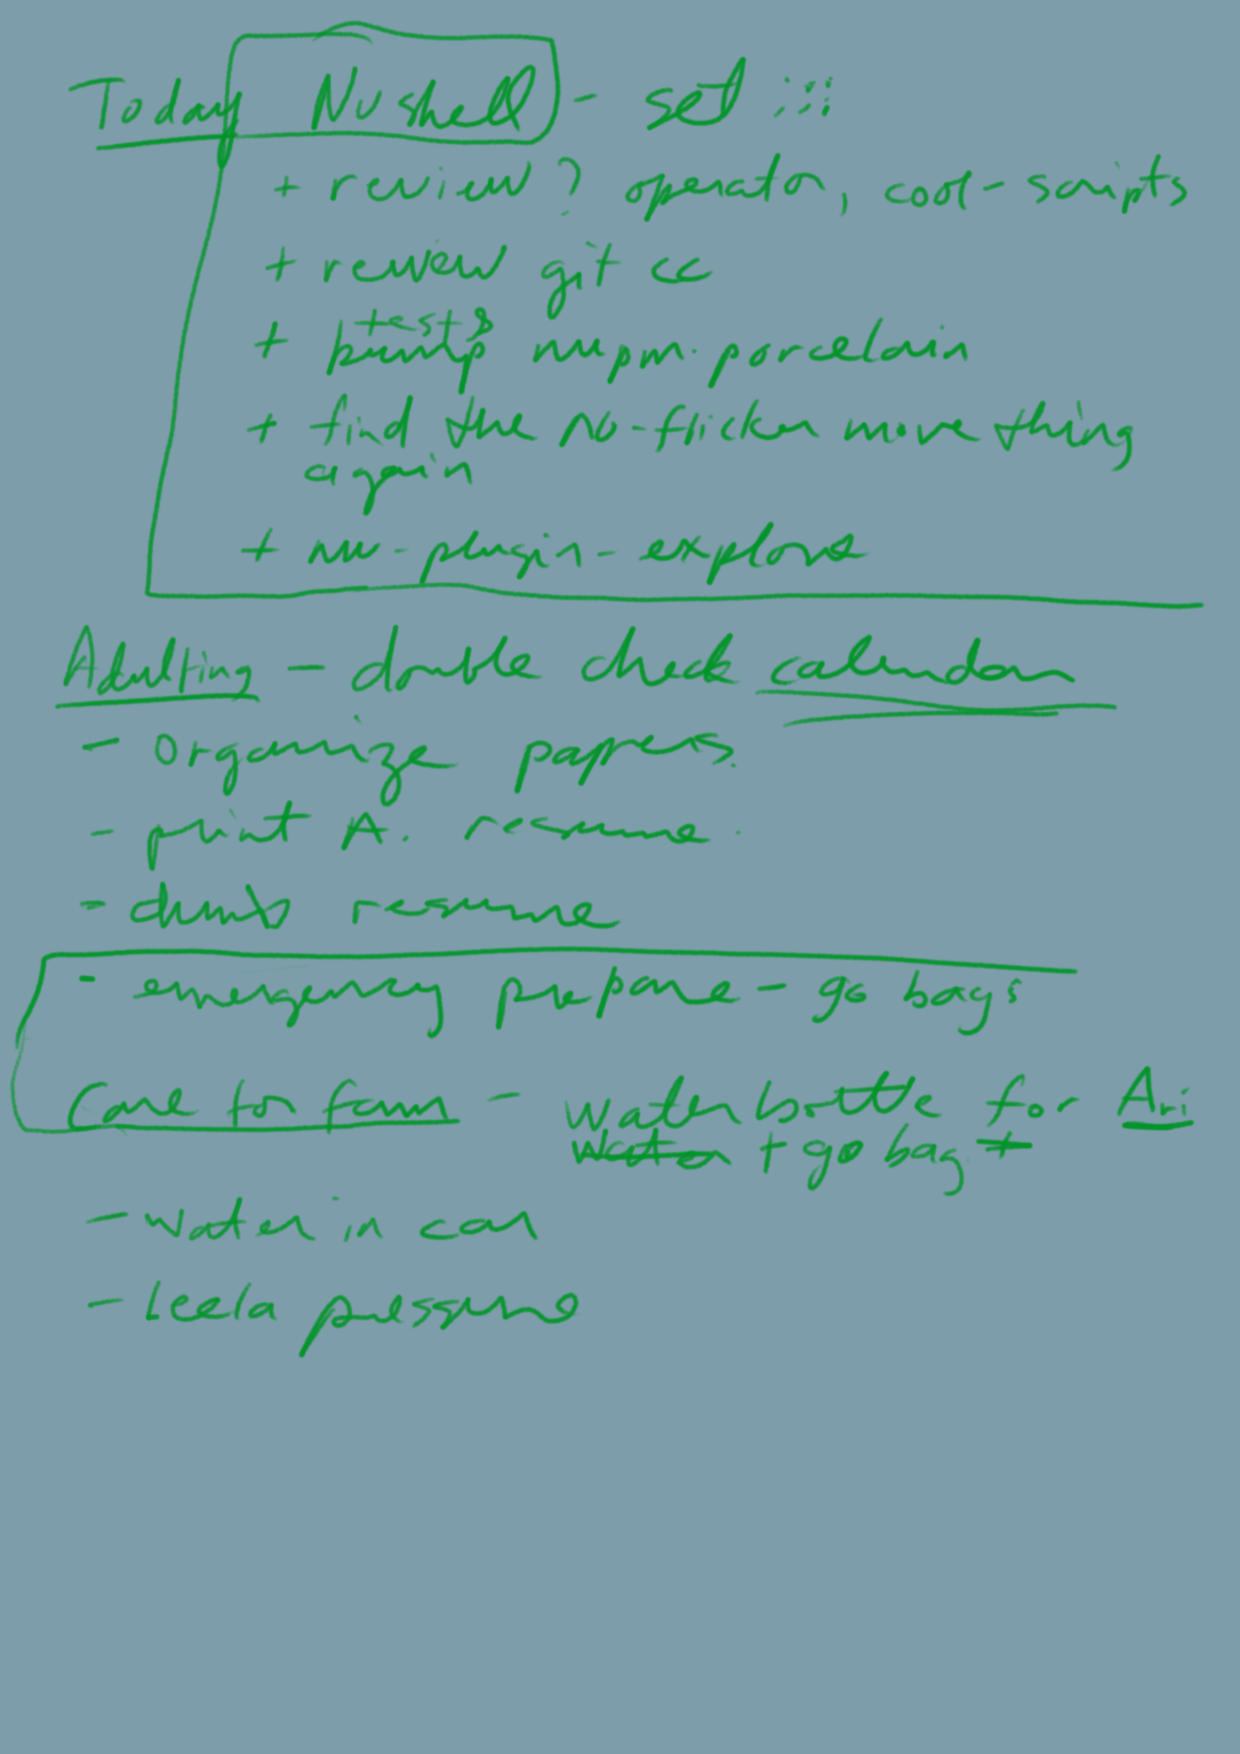 Today Nushell - set :::
+ review ? operator, cool-scripts
+ review git cc
tests
+ bump nupm porcelain
+ find the no-flicker move thing
again
+ nu-plugin-explore
Adulting - double check calendar
- organize papers.
- print A. resume
- dumb resume
- emergency prepare - go bags
Care for fam - water bottle for Ari
Water + go bag +
- water in car
- Leela pressure